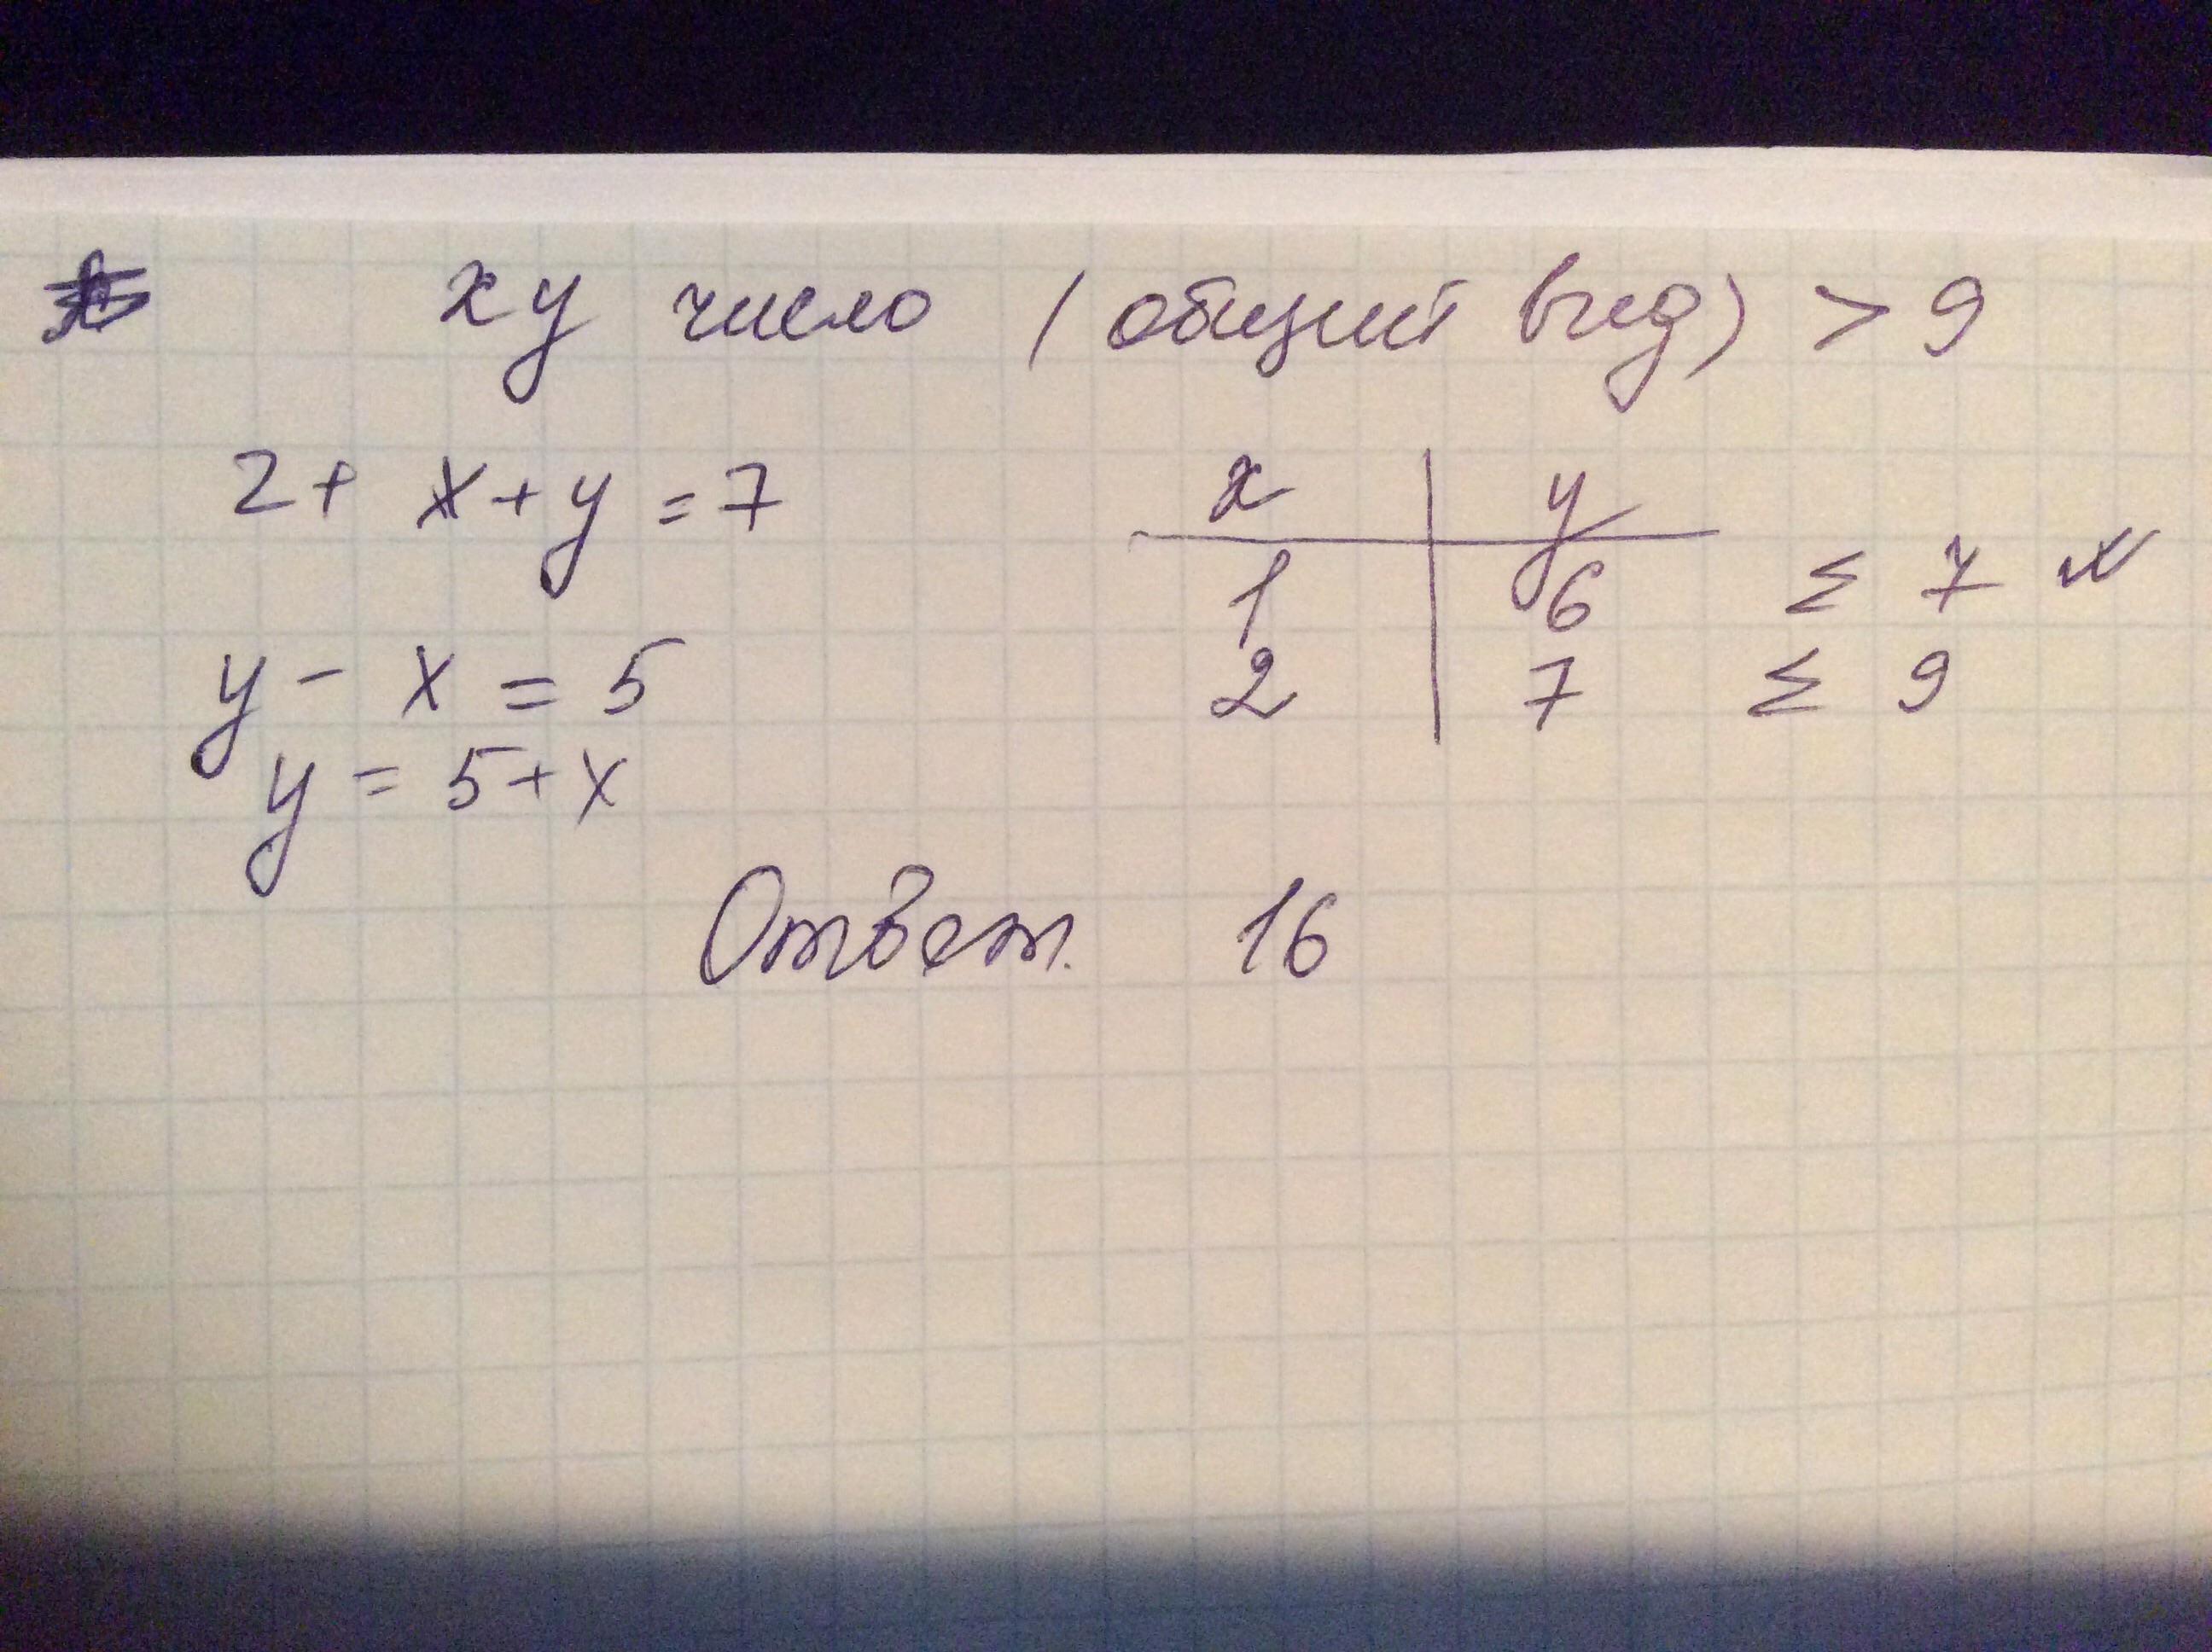 xy число (общий вид) > 9
2 + x + y = 7
y - x = 5
y = 5 + x
x | y
1 | 6 Σ 7
2 | 7 Σ 9
Ответ. 16